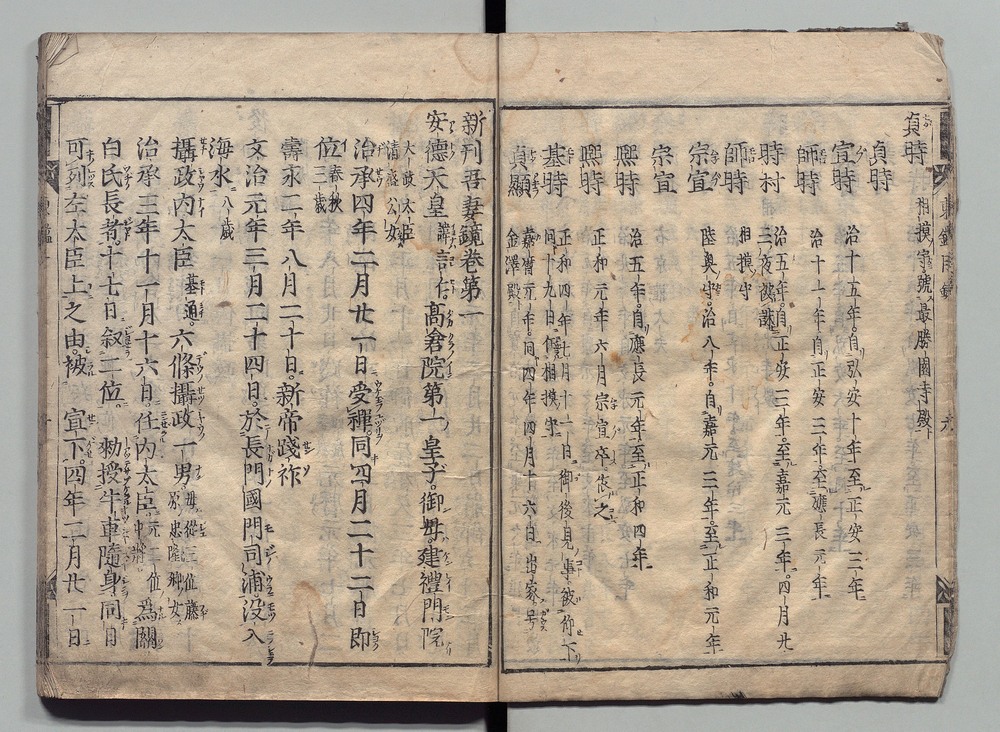 貞時 相摸守號最勝園寺殿
貞時 治十五年自弘安十年至正安三年
宣時
師時 治十一年自正安三年至應長元年
時村 治五年自正安三年至嘉元三年四月廿
三夜被誅
師時 相摸守
宗宣 陸奥守治八年自嘉元三年至正和元年
宗宣
凞時 治五年自應長元年至正和四年
凞時 正和元年六月宗宣卒依之
基時 正和四年七月十一日御後見事被仰下
同十九日任相摸守
貞顯 嘉暦元年同四年四月十六日出家号
金澤殿
新刊吾妻鏡卷第一
安德天皇 諱言仁 髙倉院第一皇子御母建禮門院
太政大臣
清盛公女
治承四年二月廿一日受禪同四月二十二日即
位 春秋三歳
壽永二年八月二十日新帝踐祚
文治元年三月二十四日於長門國門司浦没入
海水 八歳
攝政内大臣 基通 六條攝政一男 母從三位藤原忠隆卿女
治承三年十一月十六日任内大臣 元二位中將 為關
白氏長者十七日叙二位 勑授牛車隨身同日
可列左大臣上之由被 宣下四年二月廿一日